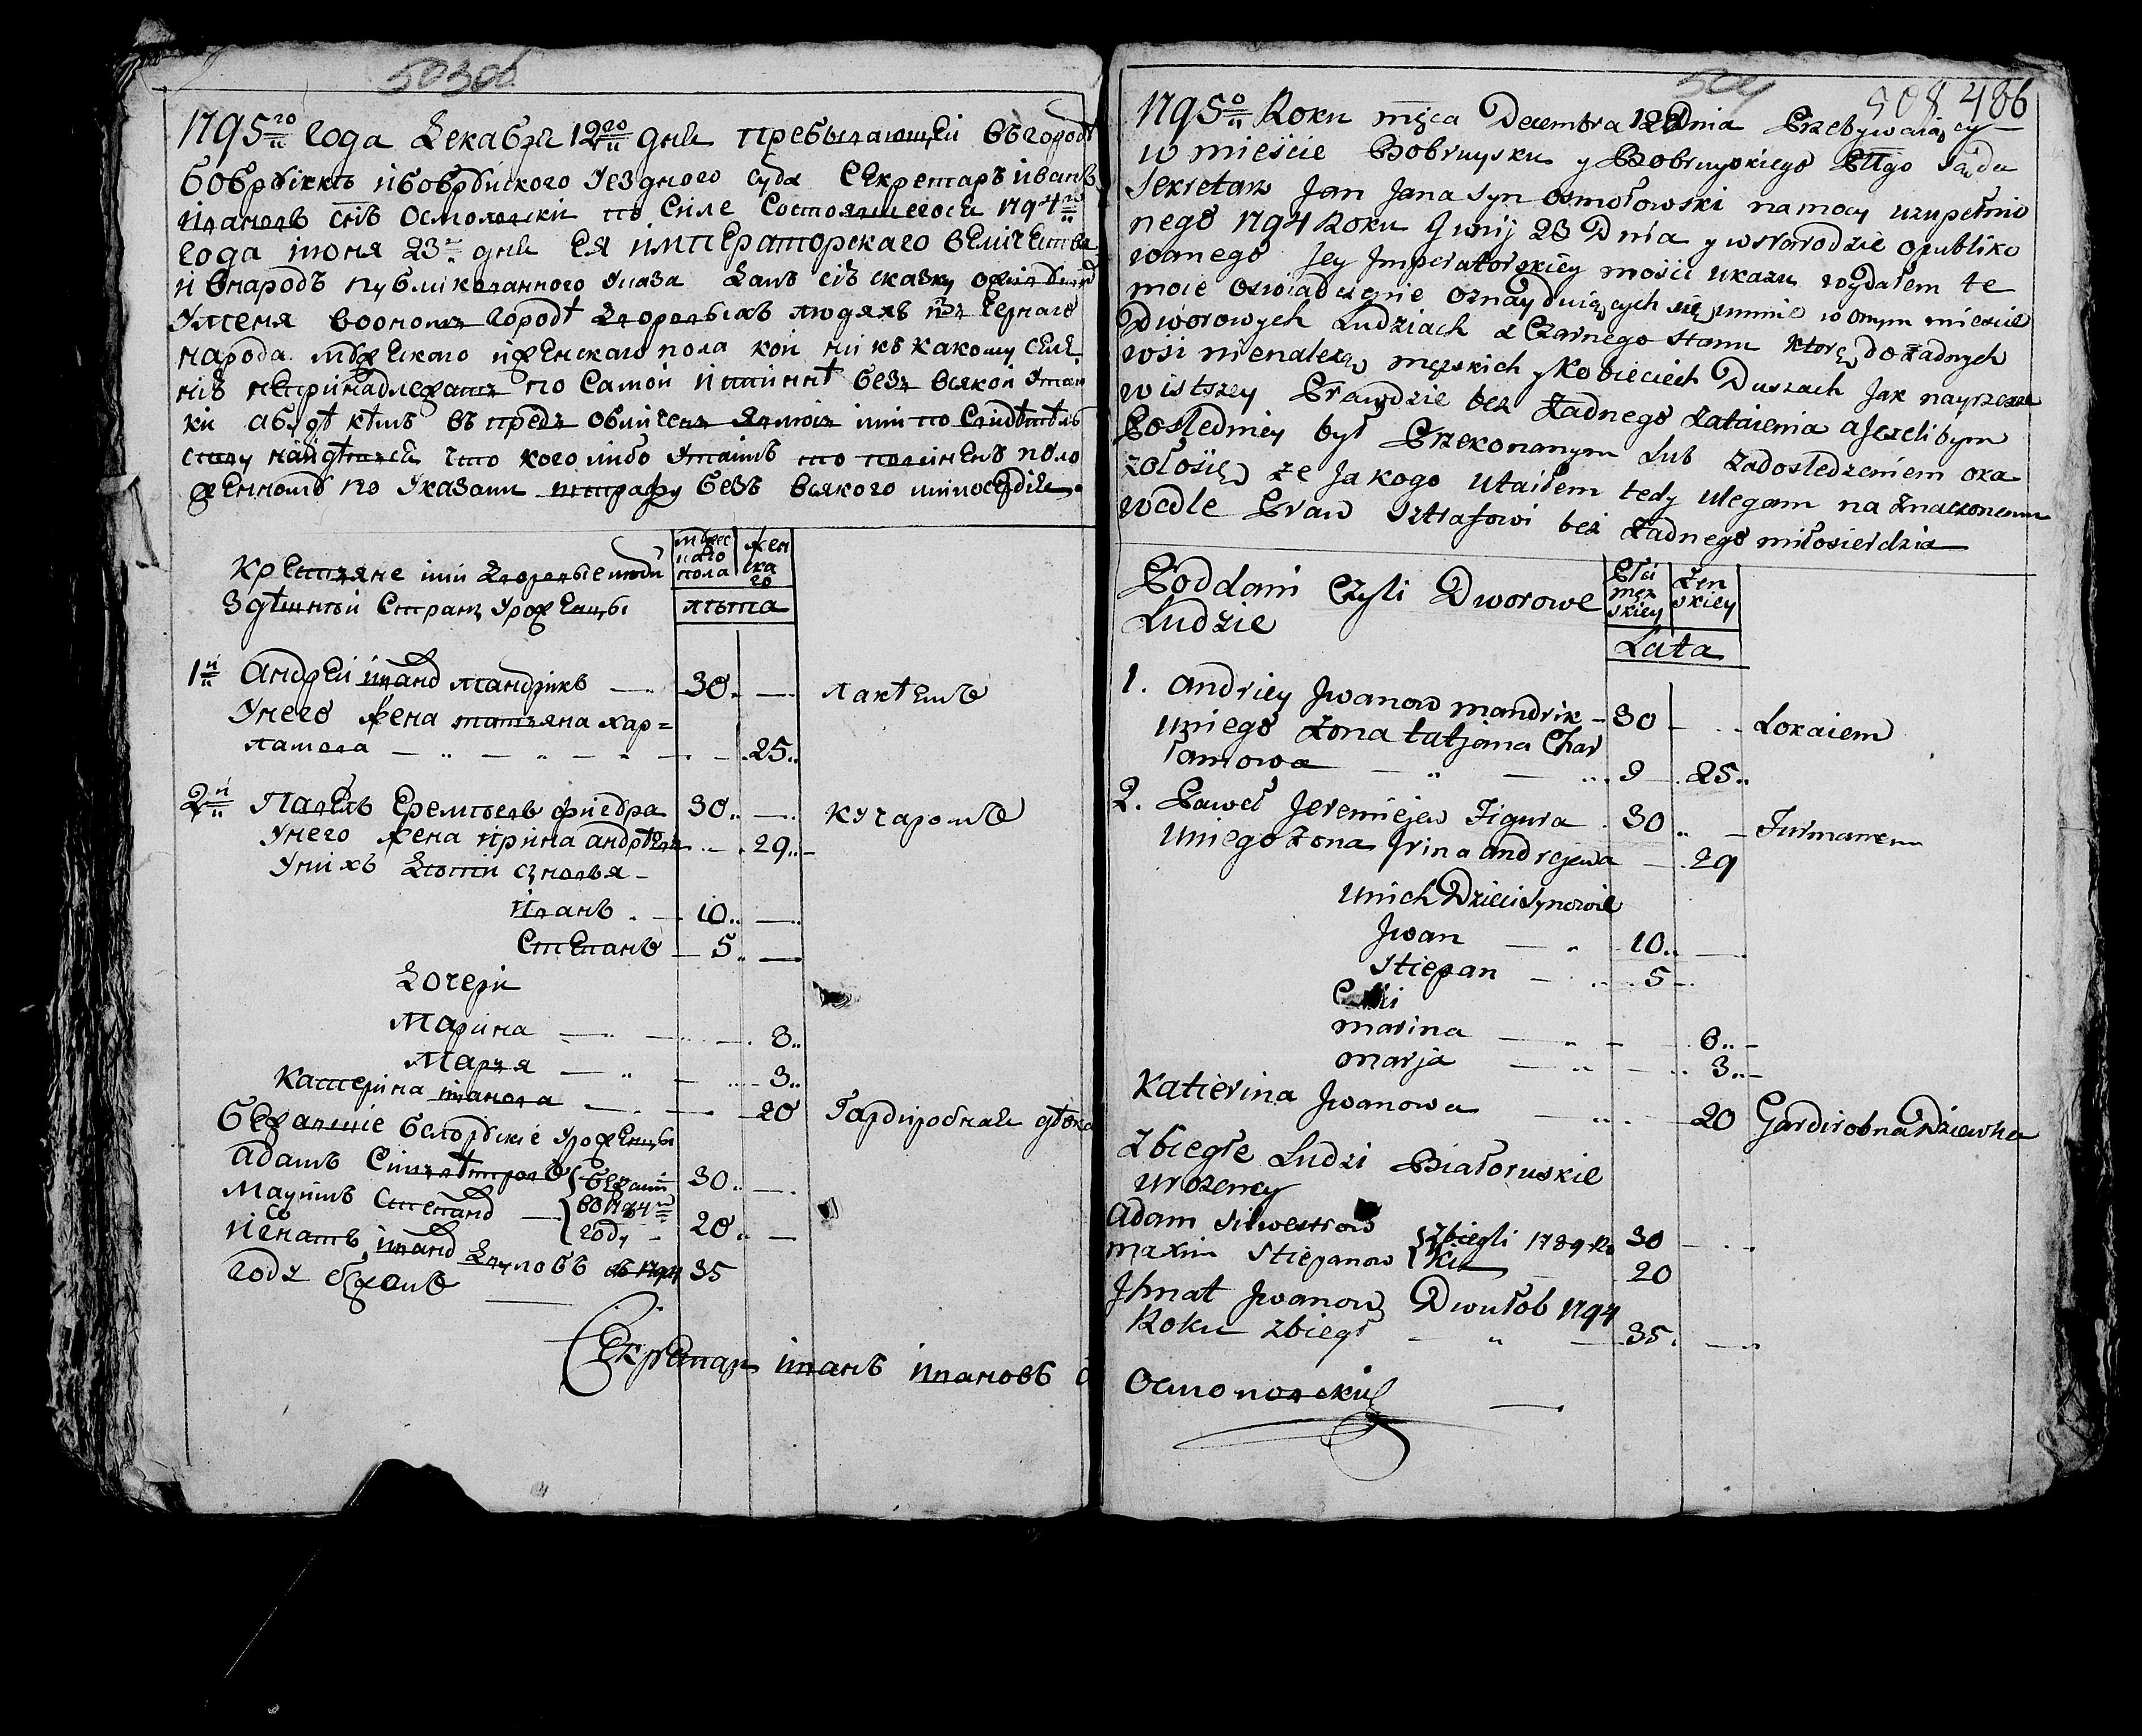 503об
1795го года Декабря 12го дня пребывающей въ городѣ
Бобруйкѣ и Бобруйского уездного суда Секретарь Иванъ
Ивановъ снъ Осмоловски по силе состоявшегося 1794го
года июня 23го дня Ея Императорскаго Величества
и внародъ публикованного указа далъ сію сказку
у меня воономъ городѣ дворовыхъ людяхъ изъ черного
народа мужеского и женскаго пола кои ни къ какому селе
нію непринадлежатъ по самои истиннѣ безъ всякои утаи
ки а будѣ кѣмъ въ предъ обличенъ явлюсь или по свидѣтель
ству найдѣтся что коголибо утаилъ то повиненъ поло
женному по указамъ штрафу безъ всякого милосердія
Крестьяне или дворовые люди
Здѣшнѣй страны уроженцы
мужес
каго
пола
жен
ска
го
лѣта
1й Андрей Иванов Мандрикъ 30 — лакѣемъ
У него жена татьяна хар=
ламова 25
2й Павелъ Еремѣевъ фигура 30 — кучаромъ
У него жена ирина андрѣева 29
У нихъ дѣти сыновья
Иванъ 10
Степанъ 5
Дочери
Марина 8
Марья 3
Катерина иванова 20 Гардиробная дѣвка
Бежавшіе белорускіе уроженцы
Адамъ Сильвѣстровъ { бежали 30
Максимъ Степанов { 20
году
Игнатъ Иванов 1794 35
годъ бежалъ
Секретарь иванъ ивановъ
504
508 486
1795o Roku msca Decembra 12 Dnia Przebywaiący
w mieście Bobruysku y Bobruyskiego Pttgo Sądu
Sekretarz Jan Jana Syn Osmołowski na mocy uzupełnio
nego 1794 Roku Junij 23 Dnia y w Narodzie opubliko
wanego Jey Jmperatorskiey mości ukazu wydałem te
moie oswiadczenie oznayduiących się umnie w onym miescie
Dworowych Ludziach z Czarnego stanu ktorę do żadnych
wsi nienależą męzskich y Kobieciech Duszach Jak nayrzetel
w istszey Prawdzie bez Żadnego Zataienia a Jeżelibym
Posledniey był Przekonanym Lub Zadosledzeniem oka
załosię że Ja kogo Utaiłem tedy Ulegam na Znaczonemu
wedle Praw Sztrafowi bez Żadnego miłosierdzia
Poddani Czyli Dworowe
Ludzie
Płci
męz
skiey
Żen
skiey
Lata
1. Andriey Jwanow mandrik 30 Lokaiem
Uniego Żona tatjana Char
łamowa 9 25
2. Paweł Jeremiejew Figura 30 Furmanem
Uniego Żona Jrina andrejewa 29
Unich Dzieci Synowie
Jwan 10
Stiepan 5
marina 8
marja 3
Katierina Jwanowa 20 Gardirobna Dziewka
Zbiegłe Ludzi Białoruskie
urożency
Adam Silwestrow { Zbiegli 1789 Ro 30
Maxim Stiepanow { Ku 20
Jhnat Jwanow Dwułob 1794
Roku zbiegł 35
Осмоловски